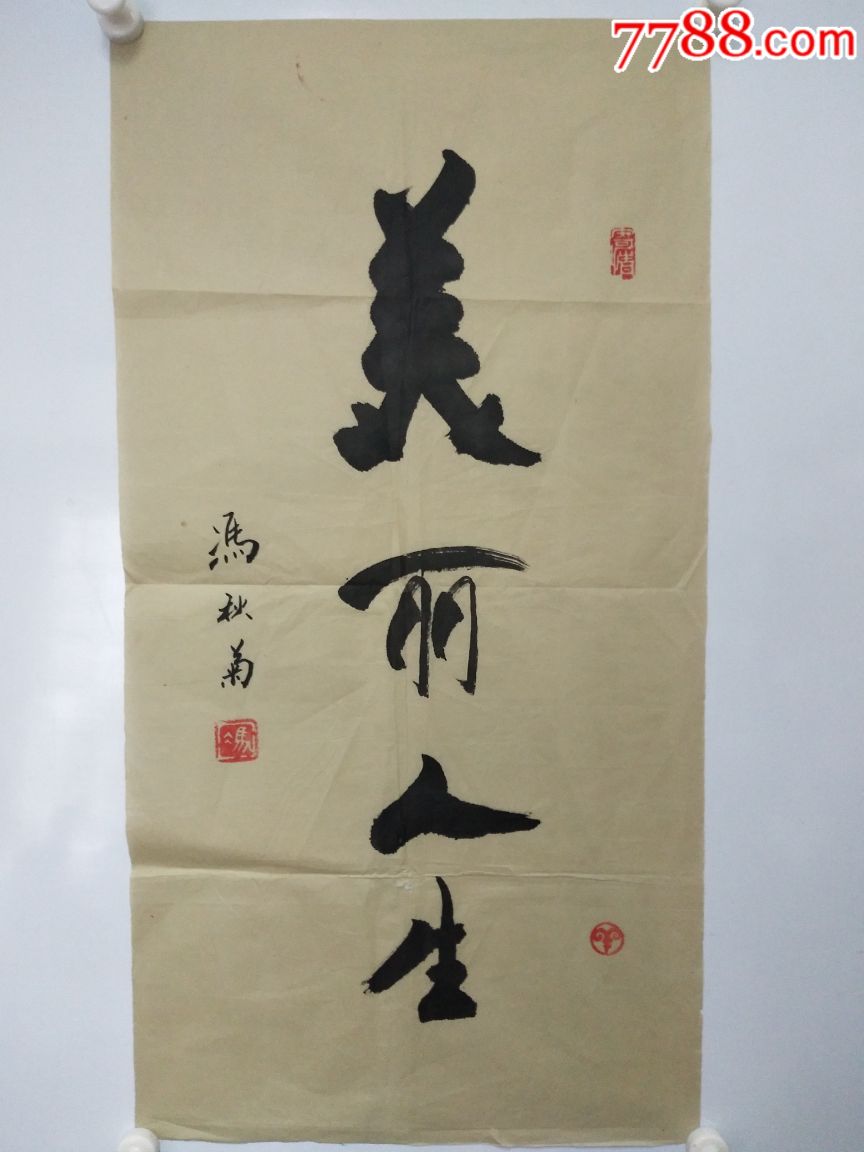 7788.com
美丽人生
馮秋菊
馮